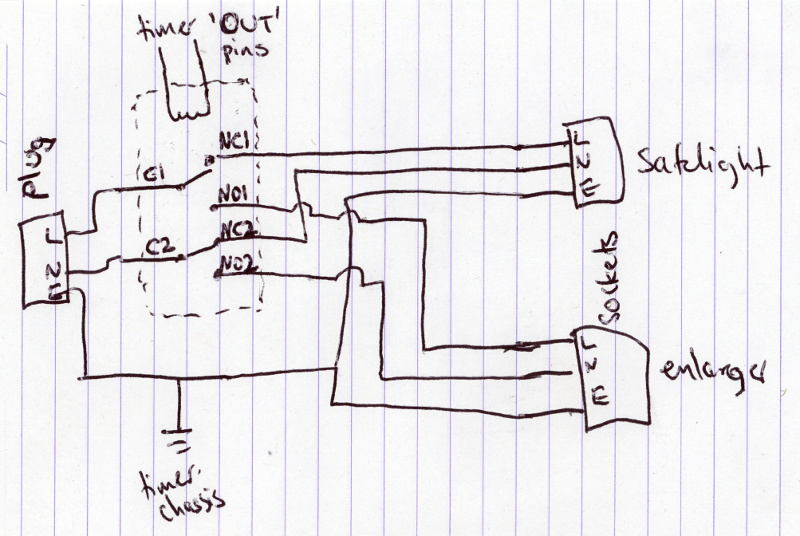 timer 'OUT'
pins
plug
L
N
E
C1
C2
NC1
NO1
NC2
NO2
L
N
E
Safelight
sockets
L
N
E
enlarger
timer
chassis